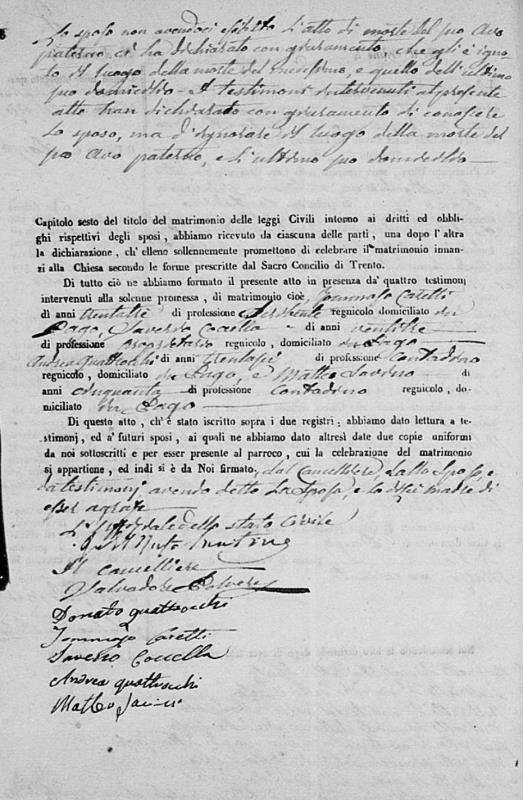 Lo sposo non avendoci esibito l'atto di morte del suo Avo
paterno ci ha dichiarato con giuramento, che gli è igno-
to il luogo della morte del medesimo, e quello dell'ultimo
suo domicilio - I testimoni intervenuti al presente
atto han dichiarato con giuramento di conoscere
Lo sposo, ma d'ignorare il luogo della morte del
suo Avo paterno, e l'ultimo suo domicilio
Capitolo sesto del titolo del matrimonio delle leggi Civili intorno ai dritti ed obbli-
ghi rispettivi degli sposi, abbiamo ricevuto da ciascuna delle parti, una dopo l'altra
la dichiarazione, ch' elleno sollennemente promettono di celebrare il matrimonio innan-
zi alla Chiesa secondo le forme prescritte dal Sacro Concilio di Trento.
Di tutto ciò ne abbiamo formato il presente atto in presenza da' quattro testimonj
intervenuti alla solenne promessa, di matrimonio cioè, Tommaso Caretti
di anni trentatre di professione Serviente regnicolo domiciliato in
Pago, Saverio Coccella - di anni ventitre
di professione regnicolo, domiciliato in Pago
Andrea Quattrocchi di anni trentasei di professione Contadino
regnicolo, domiciliato in Pago, e Matteo di
anni cinquanta di professione Contadino regnicolo, do-
miciliato in Pago
Di questo atto, ch' è stato iscritto sopra i due registri; abbiamo dato lettura a te-
stimonj, ed a' futuri sposi, ai quali ne abbiamo dato altresì date due copie uniformi
da noi sottoscritti e per esser presente al parroco, cui la celebrazione del matrimonio
si appartiene, ed indi si è da Noi firmato, dal Cancelliere, dallo Sposo, e
da testimonj avendo detto La Sposa, e la di lei madre di
esser
L' dello stato Civile
Il cancelliere
Salvadore
Donato Quattrocchi
Tommaso Caretti
Saverio Coccella
Andrea Quattrocchi
Matteo